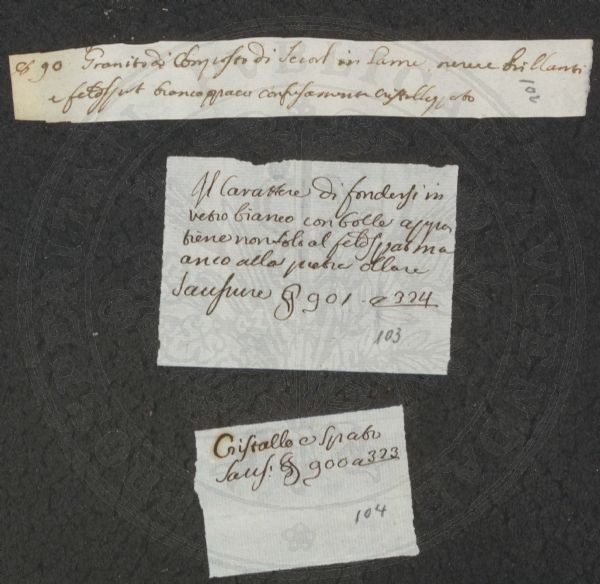 90 Granito di Composto di Scorl in Lame nere e brillanti
e feldspat bianco opaco confusamente cristallizzato
102
Il Carattere di fondersi in
vetro bianco con bolle appar
tiene non solo al feldspat ma
anco alla pietre ollare
Saussure § 901. a 324
103
Cristallo e Spato
Sauss. § 900 a 323
104